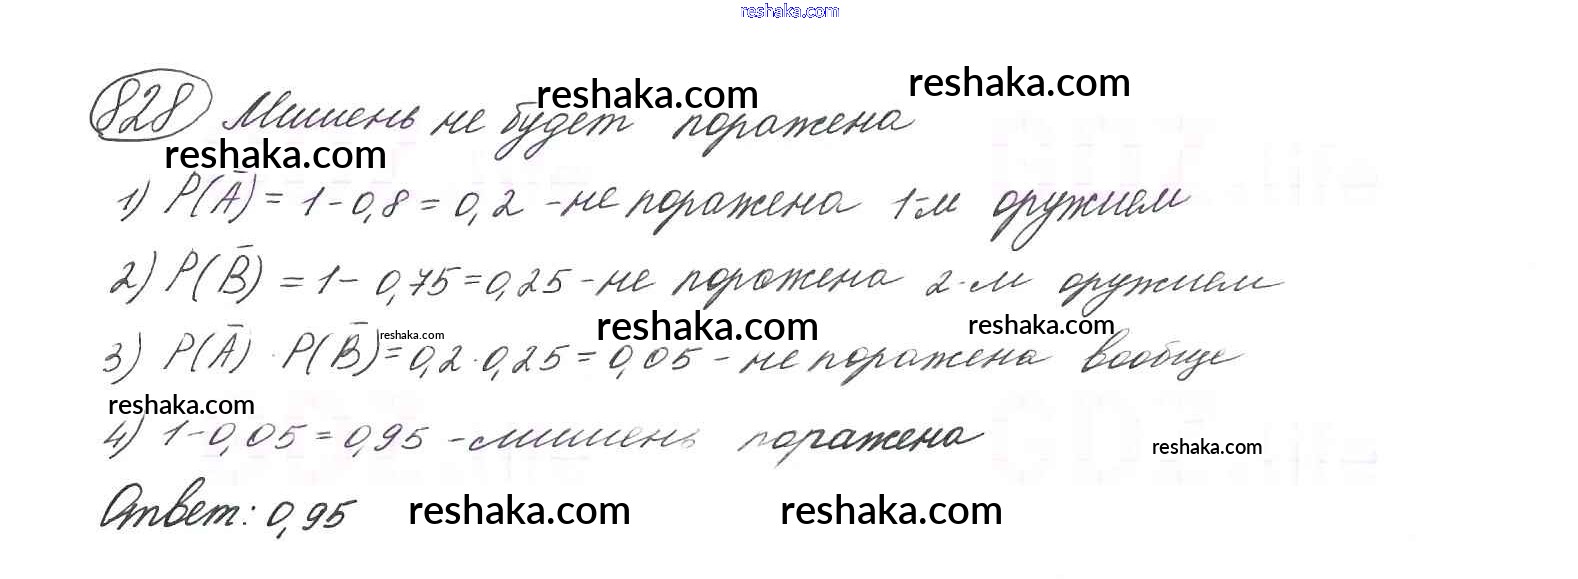 reshaka.com
828 Мишень не будет поражена
reshaka.com reshaka.com
reshaka.com
1) P(Ā) = 1 - 0,8 = 0,2 - не поражена 1-м оружием
2) P(B̄) = 1 - 0,75 = 0,25 - не поражена 2-м оружием
reshaka.com reshaka.com reshaka.com
3) P(Ā) · P(B̄) = 0,2 · 0,25 = 0,05 - не поражена вообще
reshaka.com
4) 1 - 0,05 = 0,95 - мишень поражена
reshaka.com
Ответ: 0,95
reshaka.com reshaka.com